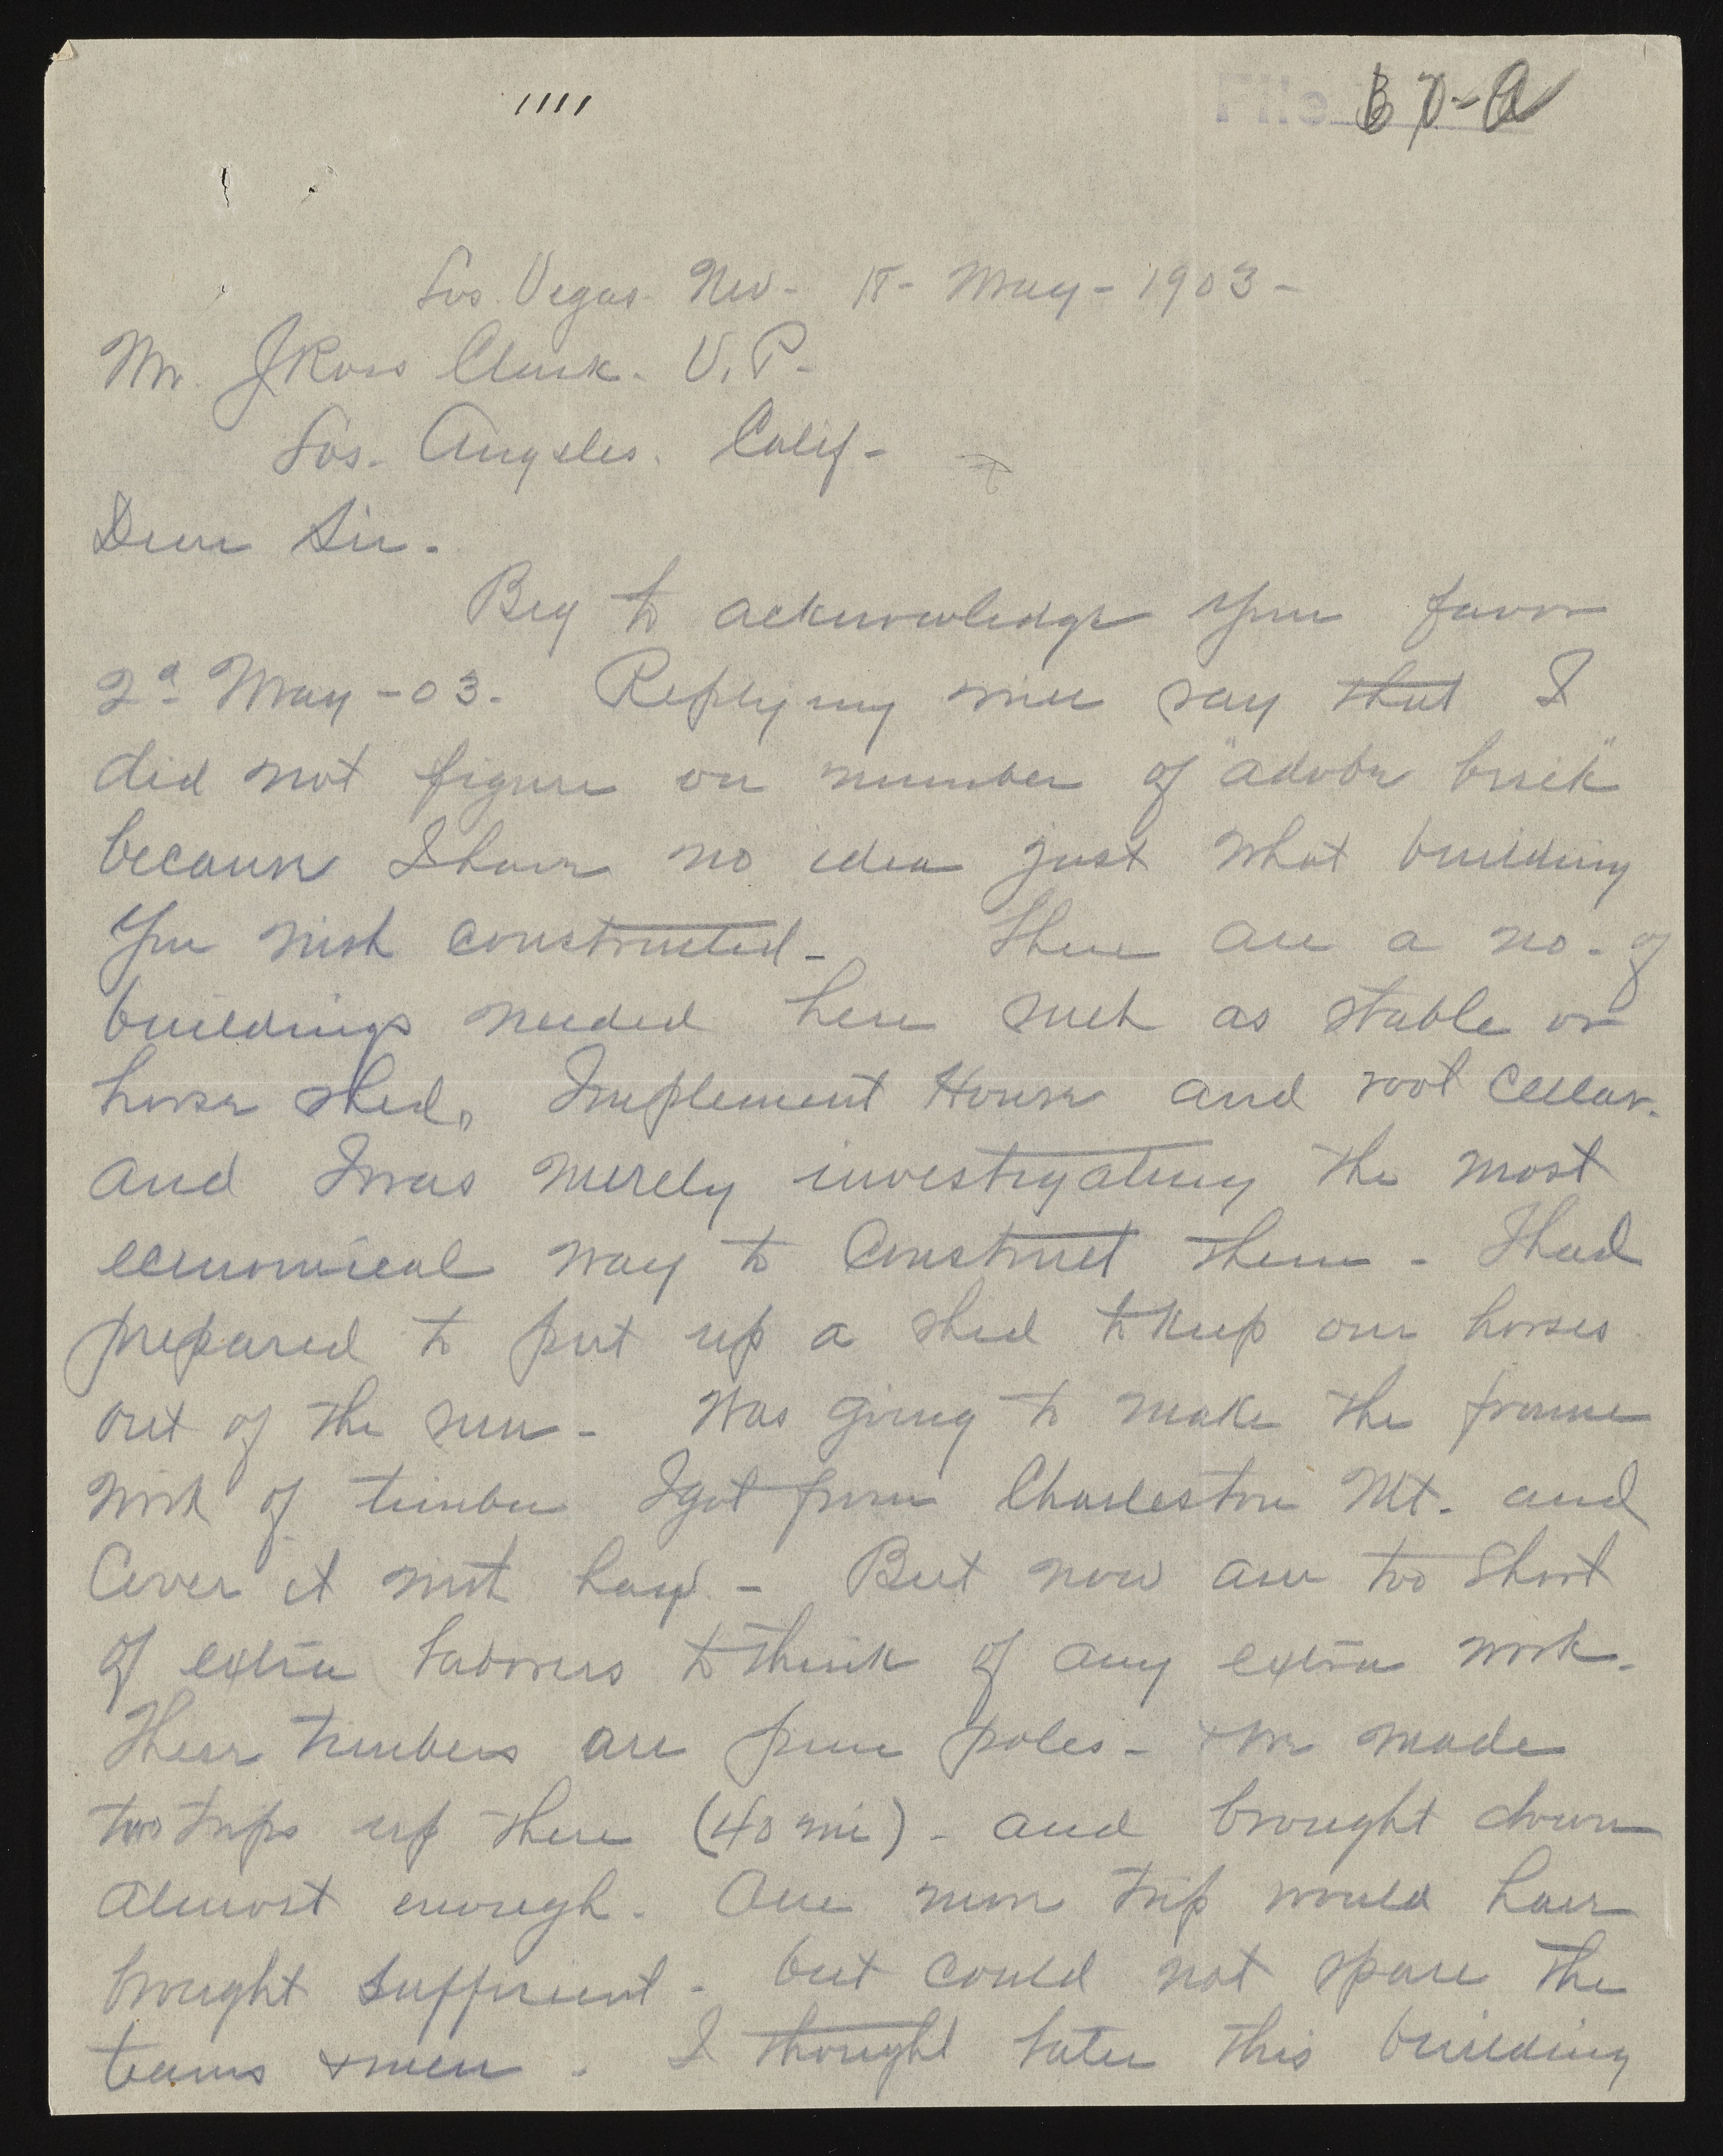 File B 7-a
Los Vegas Nev- 18- May- 1903-
Mr. J Ross Clark. V.P.
Los. Angeles. Calif-
Dear Sir.
Beg to acknowledge your favor
2d May -03. Replying will say that I
did not figure on number of "adobe brick"
because I have no idea just what building
you wish constructed- There are a no. of
buildings needed here such as stable or
horse shed, Implement House and root cellar.
and I was merely investigating the most
economical way to construct them- I had
prepared to put up a shed to keep our horses
out of the sun- Was going to make the frame
work of timber I got from Charleston Mt. and
Cover it with hay- But now am too short
of extra laborers to think of any extra work-
These timbers are pine poles- & we made
two trips up there (40 mi)- and brought down
almost enough. One more trip would have
brought sufficient- but could not spare the
teams & men. I thought later this building